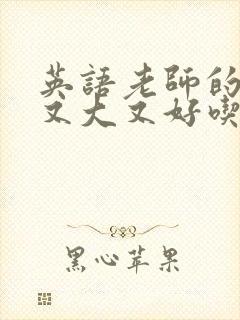 英語老師的
又大又好喫
黑心苹果